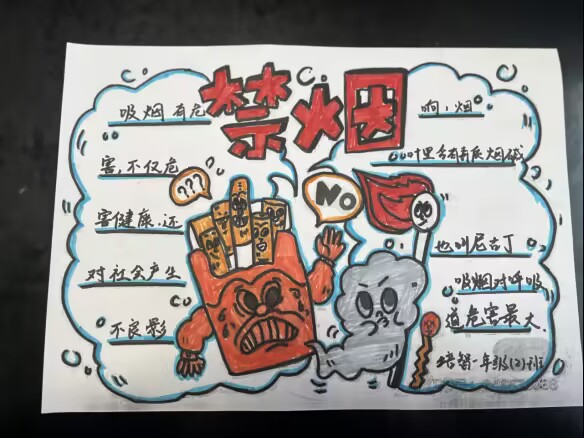 禁烟
吸烟有危
害,不仅危
害健康.还
对社会产生
不良影
???
NO
响,烟
叶里含有毒质烟碱
也叫尼古丁
吸烟对呼吸
道危害最大.
培智一年级(2)班